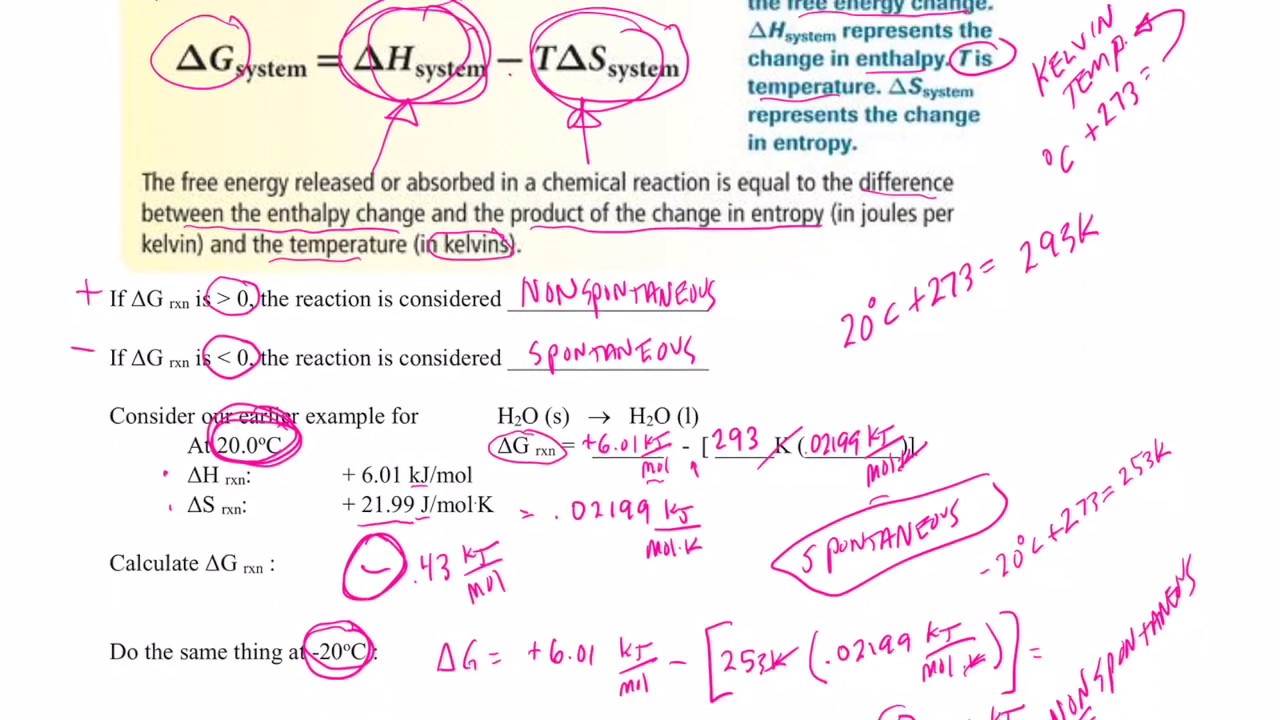 the free energy change.
ΔH system represents the
change in enthalpy. T is
temperature. ΔS system
represents the change
in entropy.
ΔG system = ΔH system − TΔS system
KELVIN
TEMP.
°C +273 =
The free energy released or absorbed in a chemical reaction is equal to the difference
between the enthalpy change and the product of the change in entropy (in joules per
kelvin) and the temperature (in kelvins).
20°C +273 = 293K
+ If ΔG rxn is > 0, the reaction is considered NONSPONTANEOUS
− If ΔG rxn is < 0, the reaction is considered SPONTANEOUS
Consider our earlier example for H₂O (s) → H₂O (l)
At 20.0°C ΔG rxn = +6.01 kJ/mol - [ 293 K (.02199 kJ/mol·K)]
ΔH rxn: + 6.01 kJ/mol
ΔS rxn: + 21.99 J/mol·K = .02199 kJ/mol·K
SPONTANEOUS
-20°C +273 = 253K
Calculate ΔG rxn : − .43 kJ/mol
Do the same thing at -20°C: ΔG = +6.01 kJ/mol − [253K (.02199 kJ/mol·K)] =
NONSPONTANEOUS